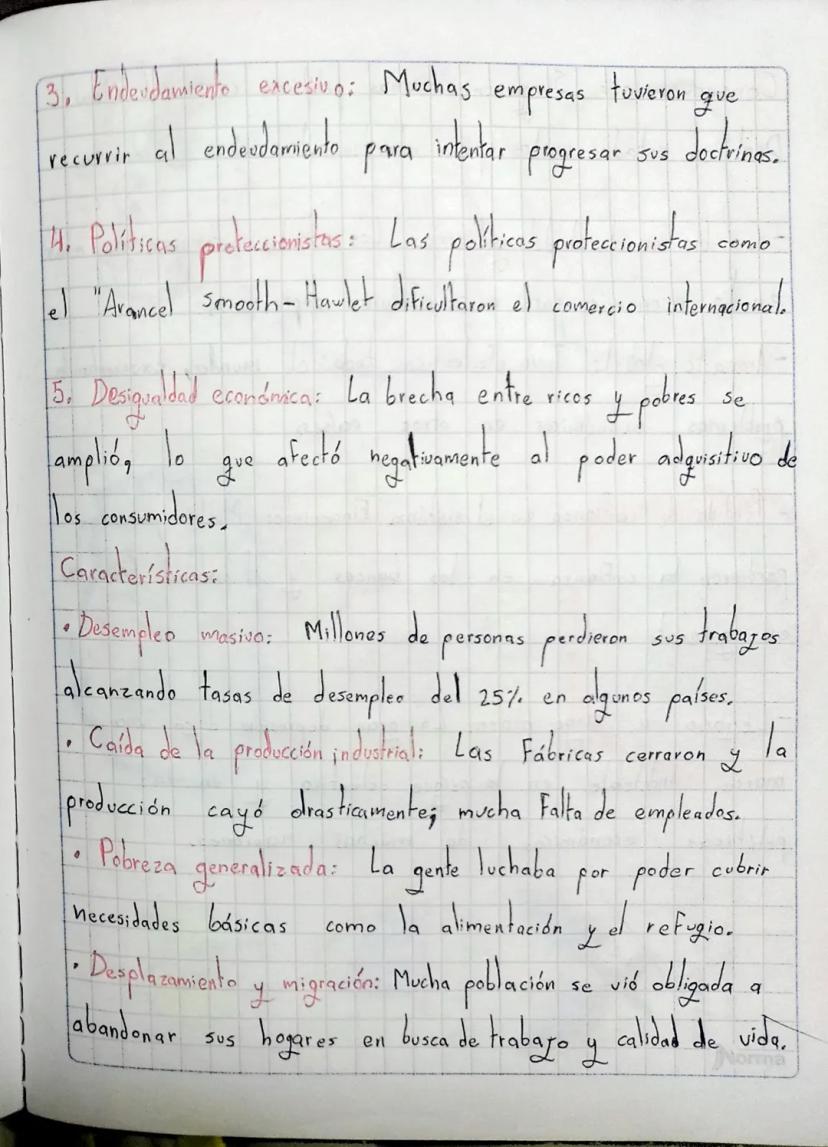 3. Endeudamiento excesivo: Muchas empresas tuvieron que
recurrir al endeudamiento para intentar progresar sus doctrinas.
4. Políticas proteccionistas: Las políticas proteccionistas como
el "Arancel smooth-Hawlet dificultaron el comercio internacional.
5. Desigualdad económica: La brecha entre ricos y pobres se
amplió, lo que afectó negativamente al poder adquisitivo de
los consumidores.
Características:
• Desempleo masivo: Millones de personas perdieron sus trabajos
alcanzando tasas de desempleo del 25% en algunos países.
• Caída de la producción industrial: Las Fábricas cerraron y la
producción cayó drasticamente; mucha Falta de empleados.
• Pobreza generalizada: La gente luchaba por poder cubrir
necesidades básicas como la alimentación y el refugio.
• Desplazamiento y migración: Mucha población se vió obligada a
abandonar sus hogares en busca de trabajo y calidad de vida.
Norma